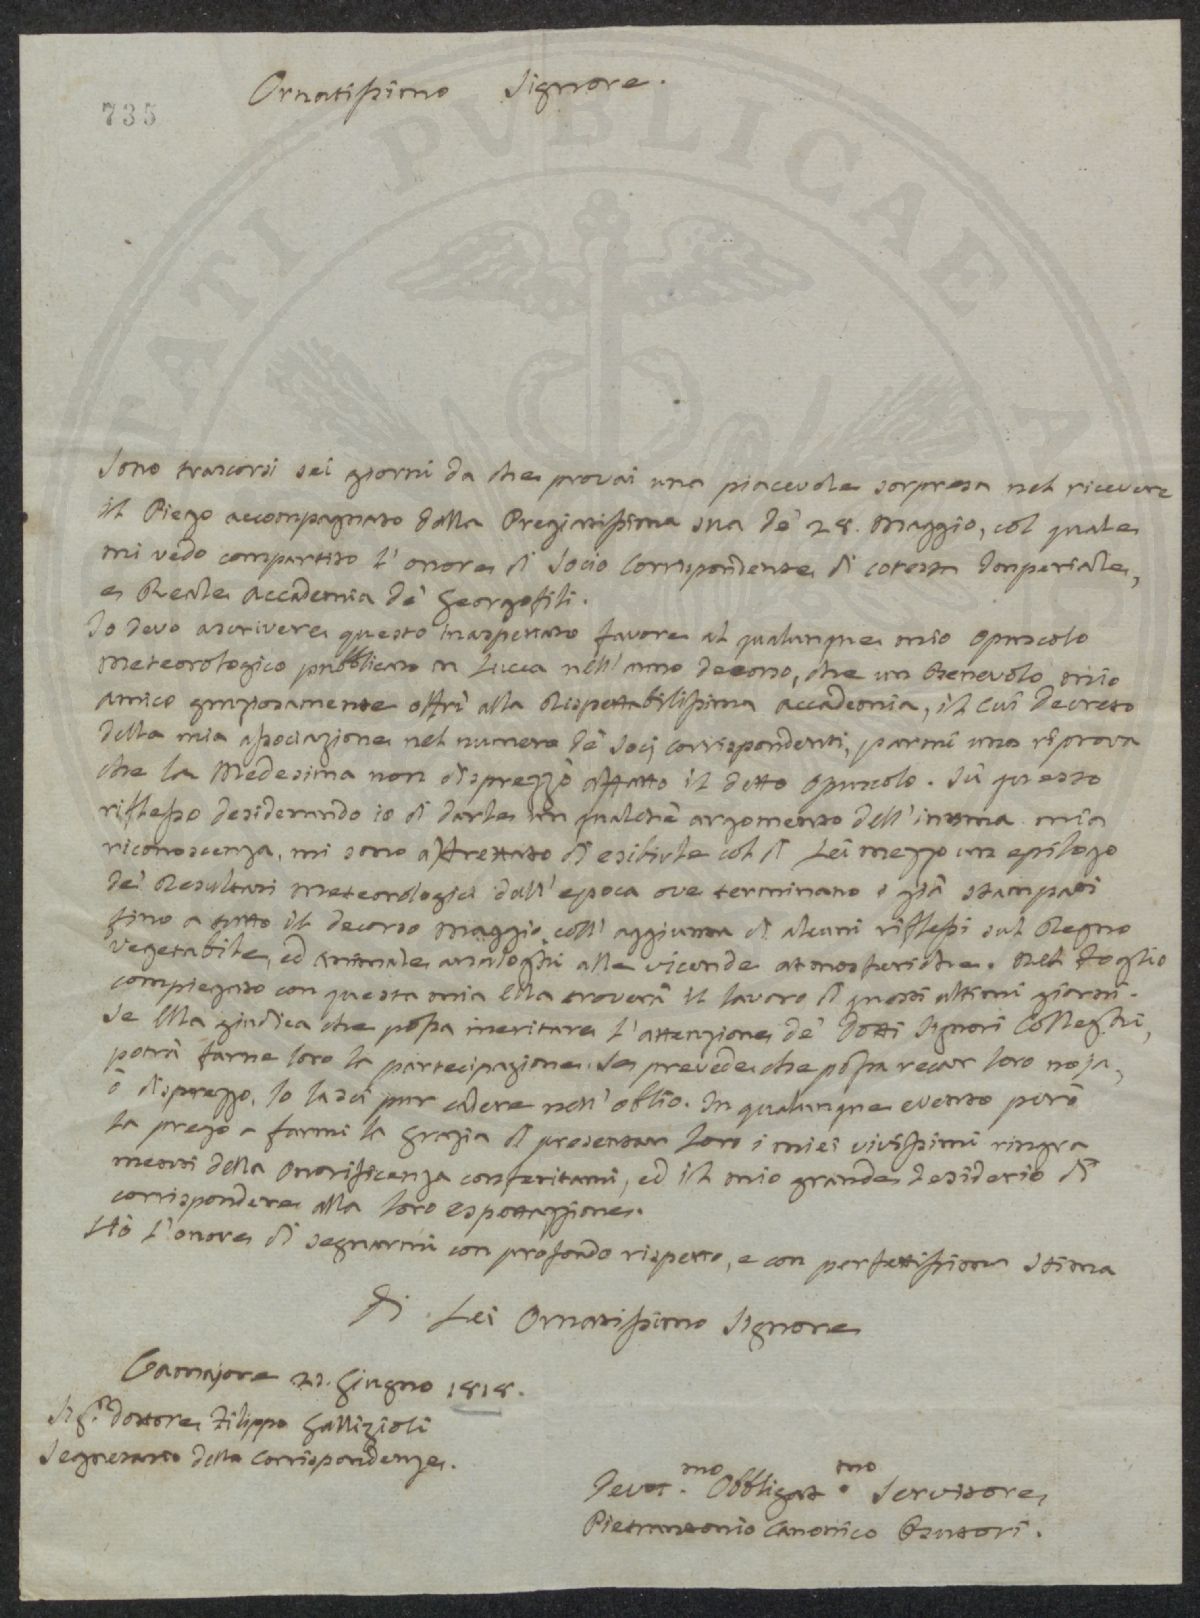 Ornatissimo Signore.
735
PUBLICAE
Sono trascorsi sei giorni da che provai una piacevole sorpresa nel ricevere
il Piego accompagnato dalla Pregiatissima sua de' 28. Maggio, col quale
mi vedo compartito l'onore di Socio Corrispondente di cotesta Imperiale,
e Reale Accademia de' Georgofili.
Io devo ascrivere questo inaspettato favore al qualunque mio opuscolo
Meteorologico pubblicato in Lucca nell'anno decorso, che un Benevolo mio
amico generosamente offrì alla Rispettabilissima accademia, il cui decreto
della mia associazione nel numero de' Socj corrispondenti, parmi una riprova
che la Medesima non disprezzò affatto il detto opuscolo. Sù questo
riflesso desiderando io di darle un qualche argomento dell'intima mia
riconoscenza, mi sono affrettato di esibirle col di Lei mezzo un epilogo
dei Resultati Meteorologici dall'epoca ove terminano i già stampati
fino a tutto il decorso Maggio coll'aggiunta di alcuni riflessi sul Regno
vegetabile, ed animale analoghi alle vicende atmosferiche. Nel Foglio
compiegato con questa mia Ella troverà il lavoro di questi ultimi giorni.
Se Ella giudica che possa meritare l'attenzione de' Dotti Signori Colleghi,
potrà farne loro la partecipazione. Se prevede che possa recar loro noja,
ò disprezzo, lo lasci pur cadere nell'oblio. In qualunque evento però
La prego a farmi la grazia di presentar loro i miei vivissimi ringra
menti della Onorificenza conferitami, ed il mio grande desiderio di
corrispondere alla loro espettazione.
Hò l'onore di segnarmi con profondo rispetto, e con perfettissima Stima
Di Lei Ornatissimo Signore
Camajore 21. Giugno 1818.
Sig.r Dottore Filippo Gallizioli
Segretario della Corrispondenza.
Devot.mo Obbligat.mo Servitore
Pietrantonio Canonico Butori.